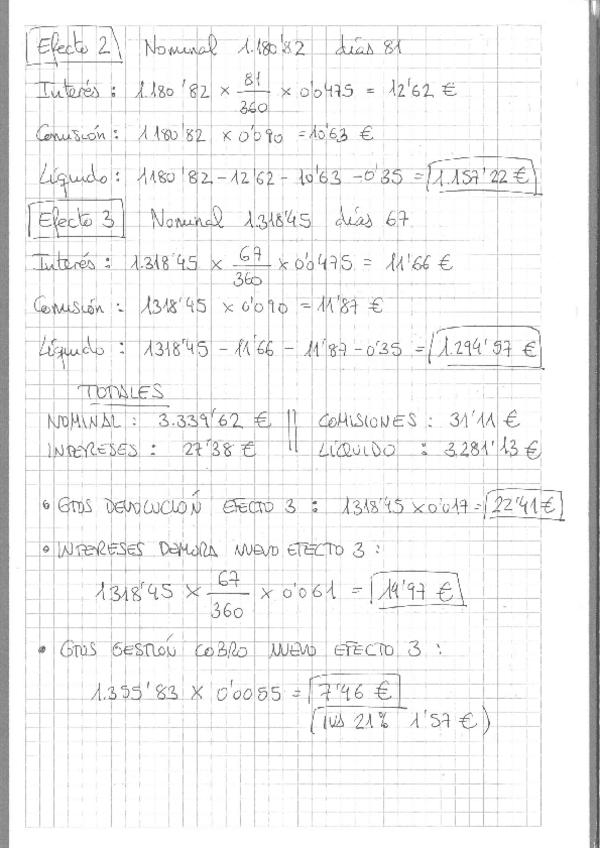 Efecto 2 Nominal 1.180'82 días 81
Interés: 1.180'82 × 81/360 × 0'0475 = 12'62 €
Comisión: 1180'82 × 0'090 = 10'63 €
Líquido: 1180'82 - 12'62 - 10'63 - 0'35 = 1.157'22 €
Efecto 3 Nominal 1.318'45 días 67
Interés: 1.318'45 × 67/360 × 0'0475 = 11'66 €
Comisión: 1318'45 × 0'090 = 11'87 €
Líquido: 1318'45 - 11'66 - 11'87 - 0'35 = 1.294'57 €
TOTALES
NOMINAL: 3.339'62 € || COMISIONES: 31'11 €
INTERESES: 27'38 € || LÍQUIDO: 3.281'13 €
• GTOS DEVOLUCIÓN EFECTO 3: 1318'45 × 0'017 = 22'41 €
• INTERESES DEMORA NUEVO EFECTO 3:
1318'45 × 67/360 × 0'061 = 14'97 €
• GTOS GESTIÓN COBRO NUEVO EFECTO 3:
1.355'83 × 0'0055 = 7'46 €
(IVA 21% 1'57 €)